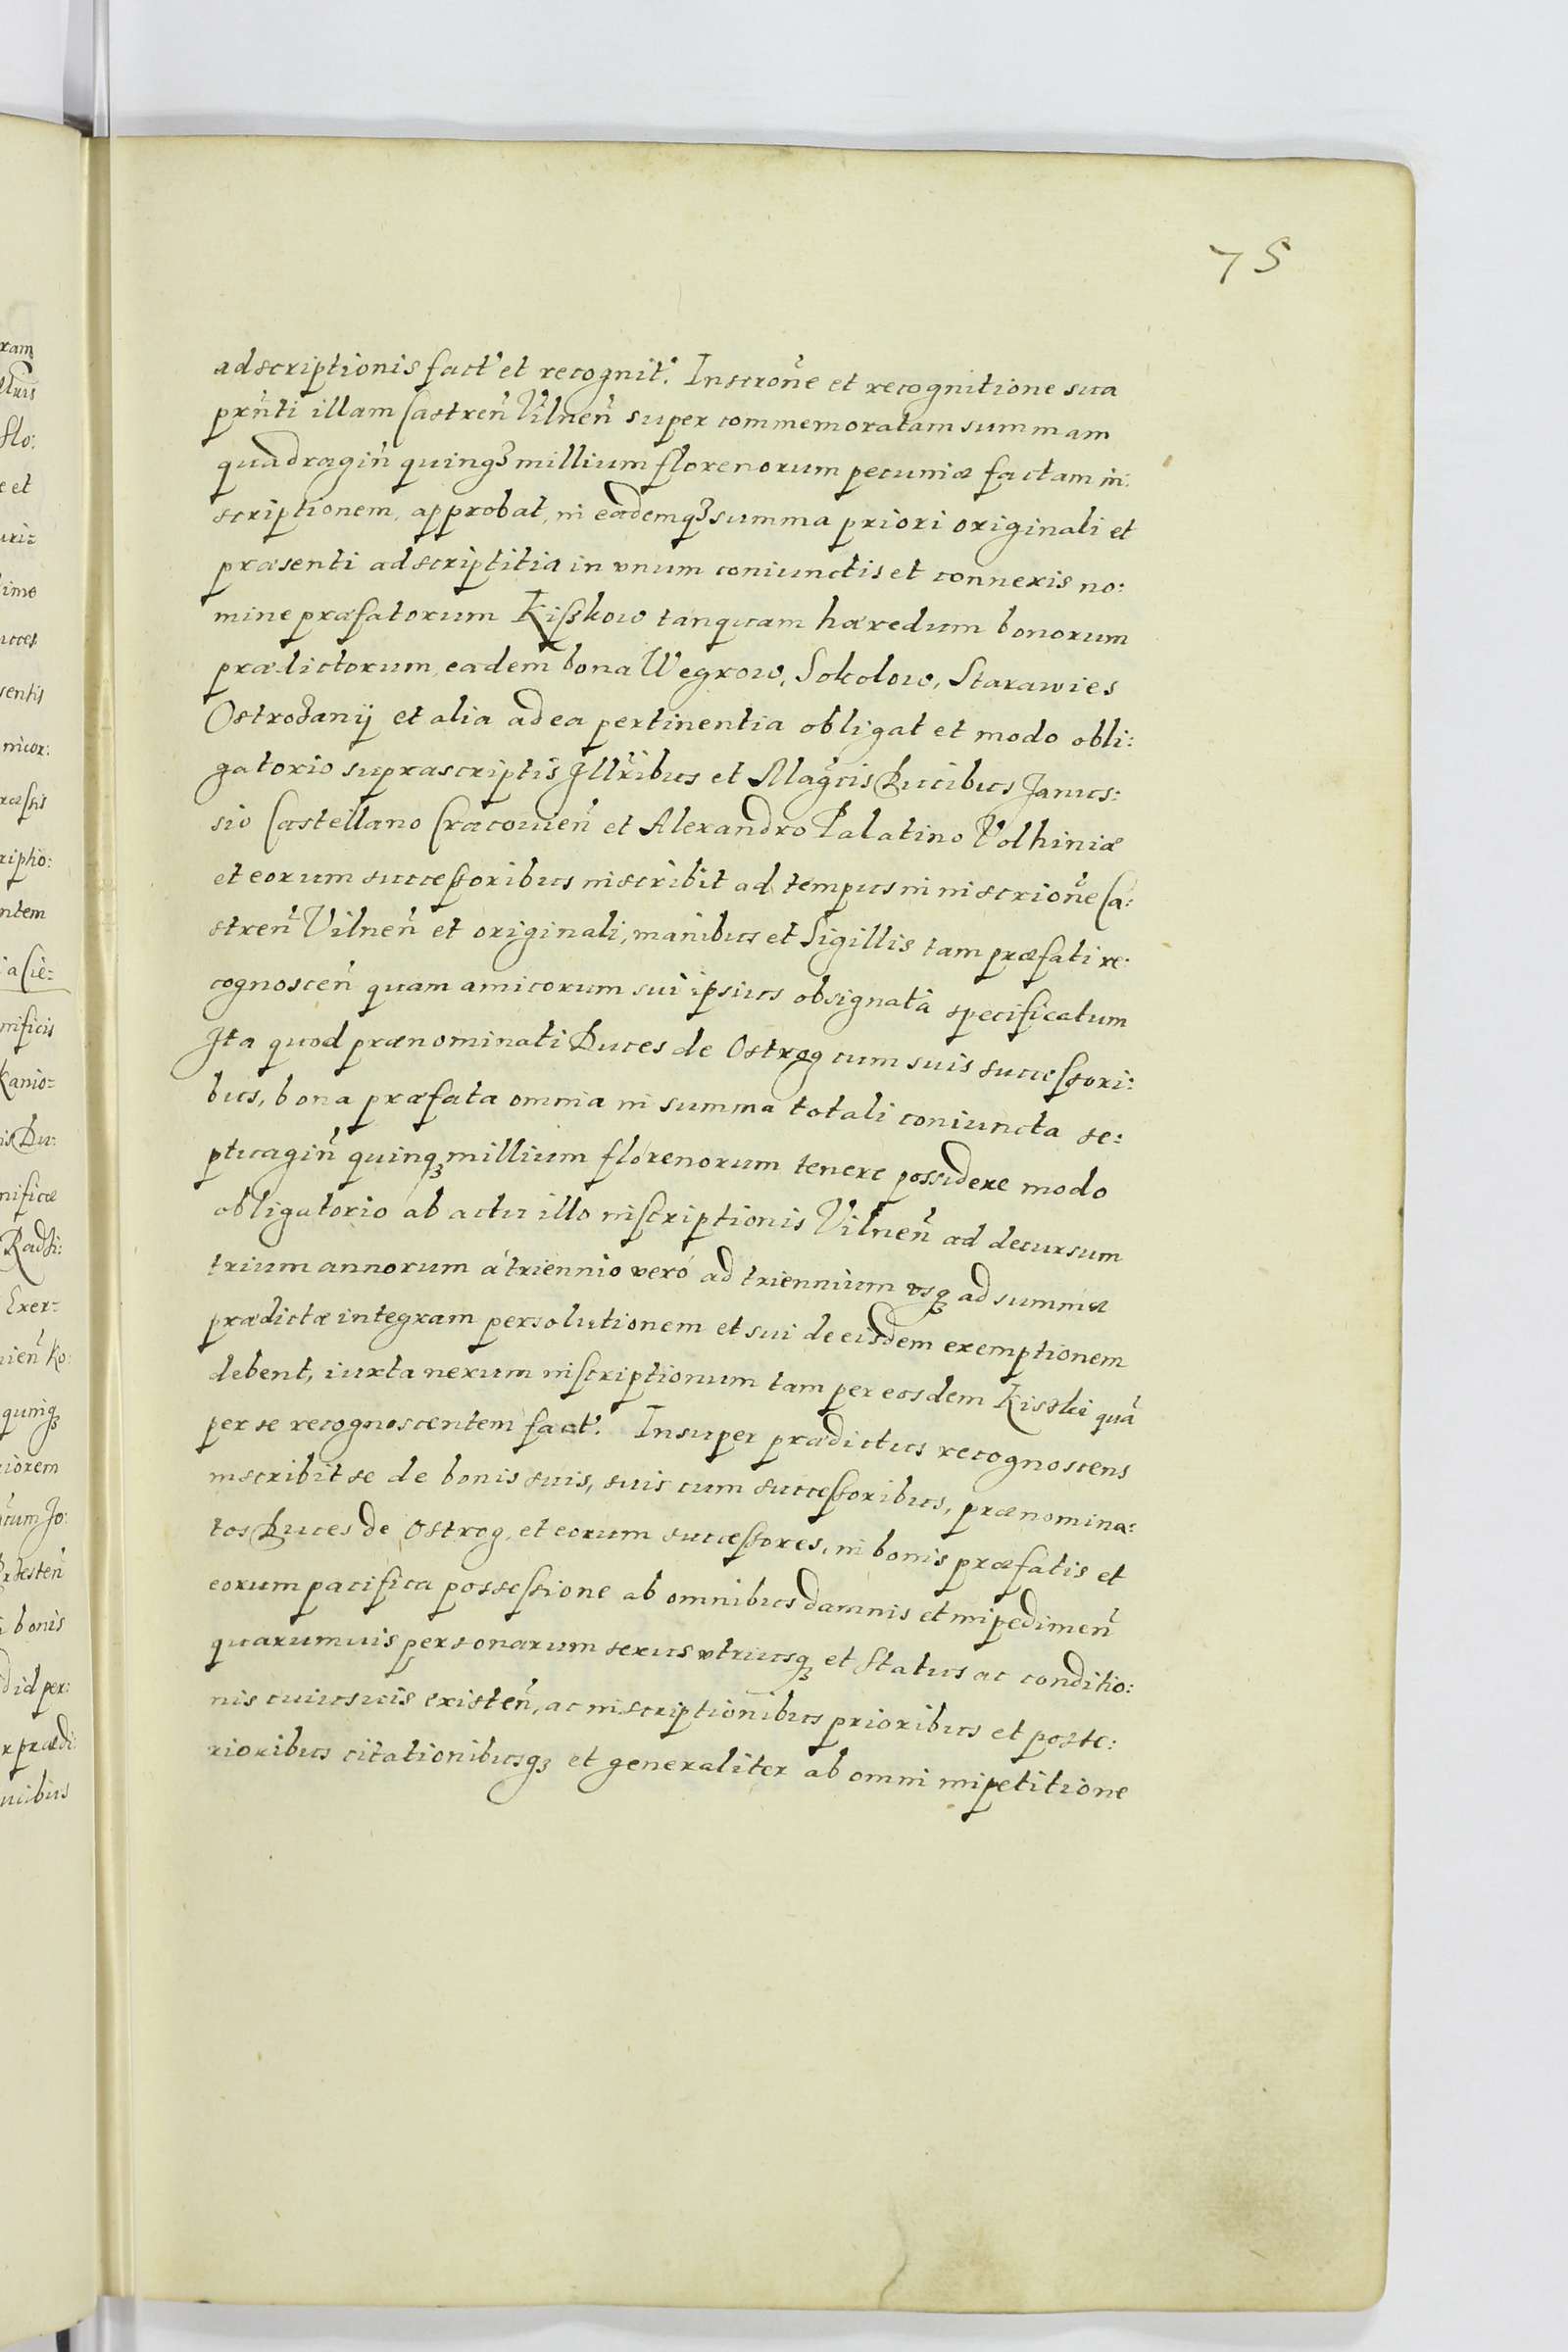 75
adscriptionis fact' et recognit'. Inscrone et recognitione sua
prnti illam Castren Vilnen super commemoratam summam
quadragin quinqȝ millium florenorum pecuniæ factam in:
scriptionem, approbat, in eademqȝ summa priori originali et
præsenti adscriptitia in vnum coniunctis et connexis no:
mine præfatorum Kißkow tanquam hæredum bonorum
prædictorum, eadem bona Wegrow, Sokolow, Starawies
Ostrożanij et alia ad ea pertinentia obligat et modo obli:
gatorio suprascriptis Illribus et Magcis Ducibus Janus:
sio Castellano Cracovien et Alexandro Palatino Volhiniæ
et eorum successoribus inscribit ad tempus in inscrione Ca:
stren Vilnen et originali, manibus et Sigillis tam præfati re:
cognoscen quam amicorum sui ipsius obsignata specificatum
Ita quod prænominati Duces de Ostrog cum suis successori:
bus, bona præfata omnia in summa totali coniuncta se:
ptuagin quinqȝ millium florenorum tenere possidere modo
obligatorio ab actu illo inscriptionis Vilnen ad decursum
trium annorum á triennio veró ad triennium vsqȝ ad summæ
prædictæ integram persolutionem et sui de eisdem exemptionem
debent, iuxta nexum inscriptionum tam per eosdem Kiszki quā
per se recognoscentem fact'. Insuper prædictus recognoscens
inscribit se de bonis suis, suis cum successoribus, prænomina:
tos Duces de Ostrog, et eorum successores, in bonis præfatis et
eorum pacifica possessione ab omnibus damnis et impedimen
quarumuis personarum sexus vtriusqȝ et Status ac conditio:
nis cuiusuis existen, ac inscriptionibus prioribus et poste:
rioribus citationibusqȝ et generaliter ab omni impetitione